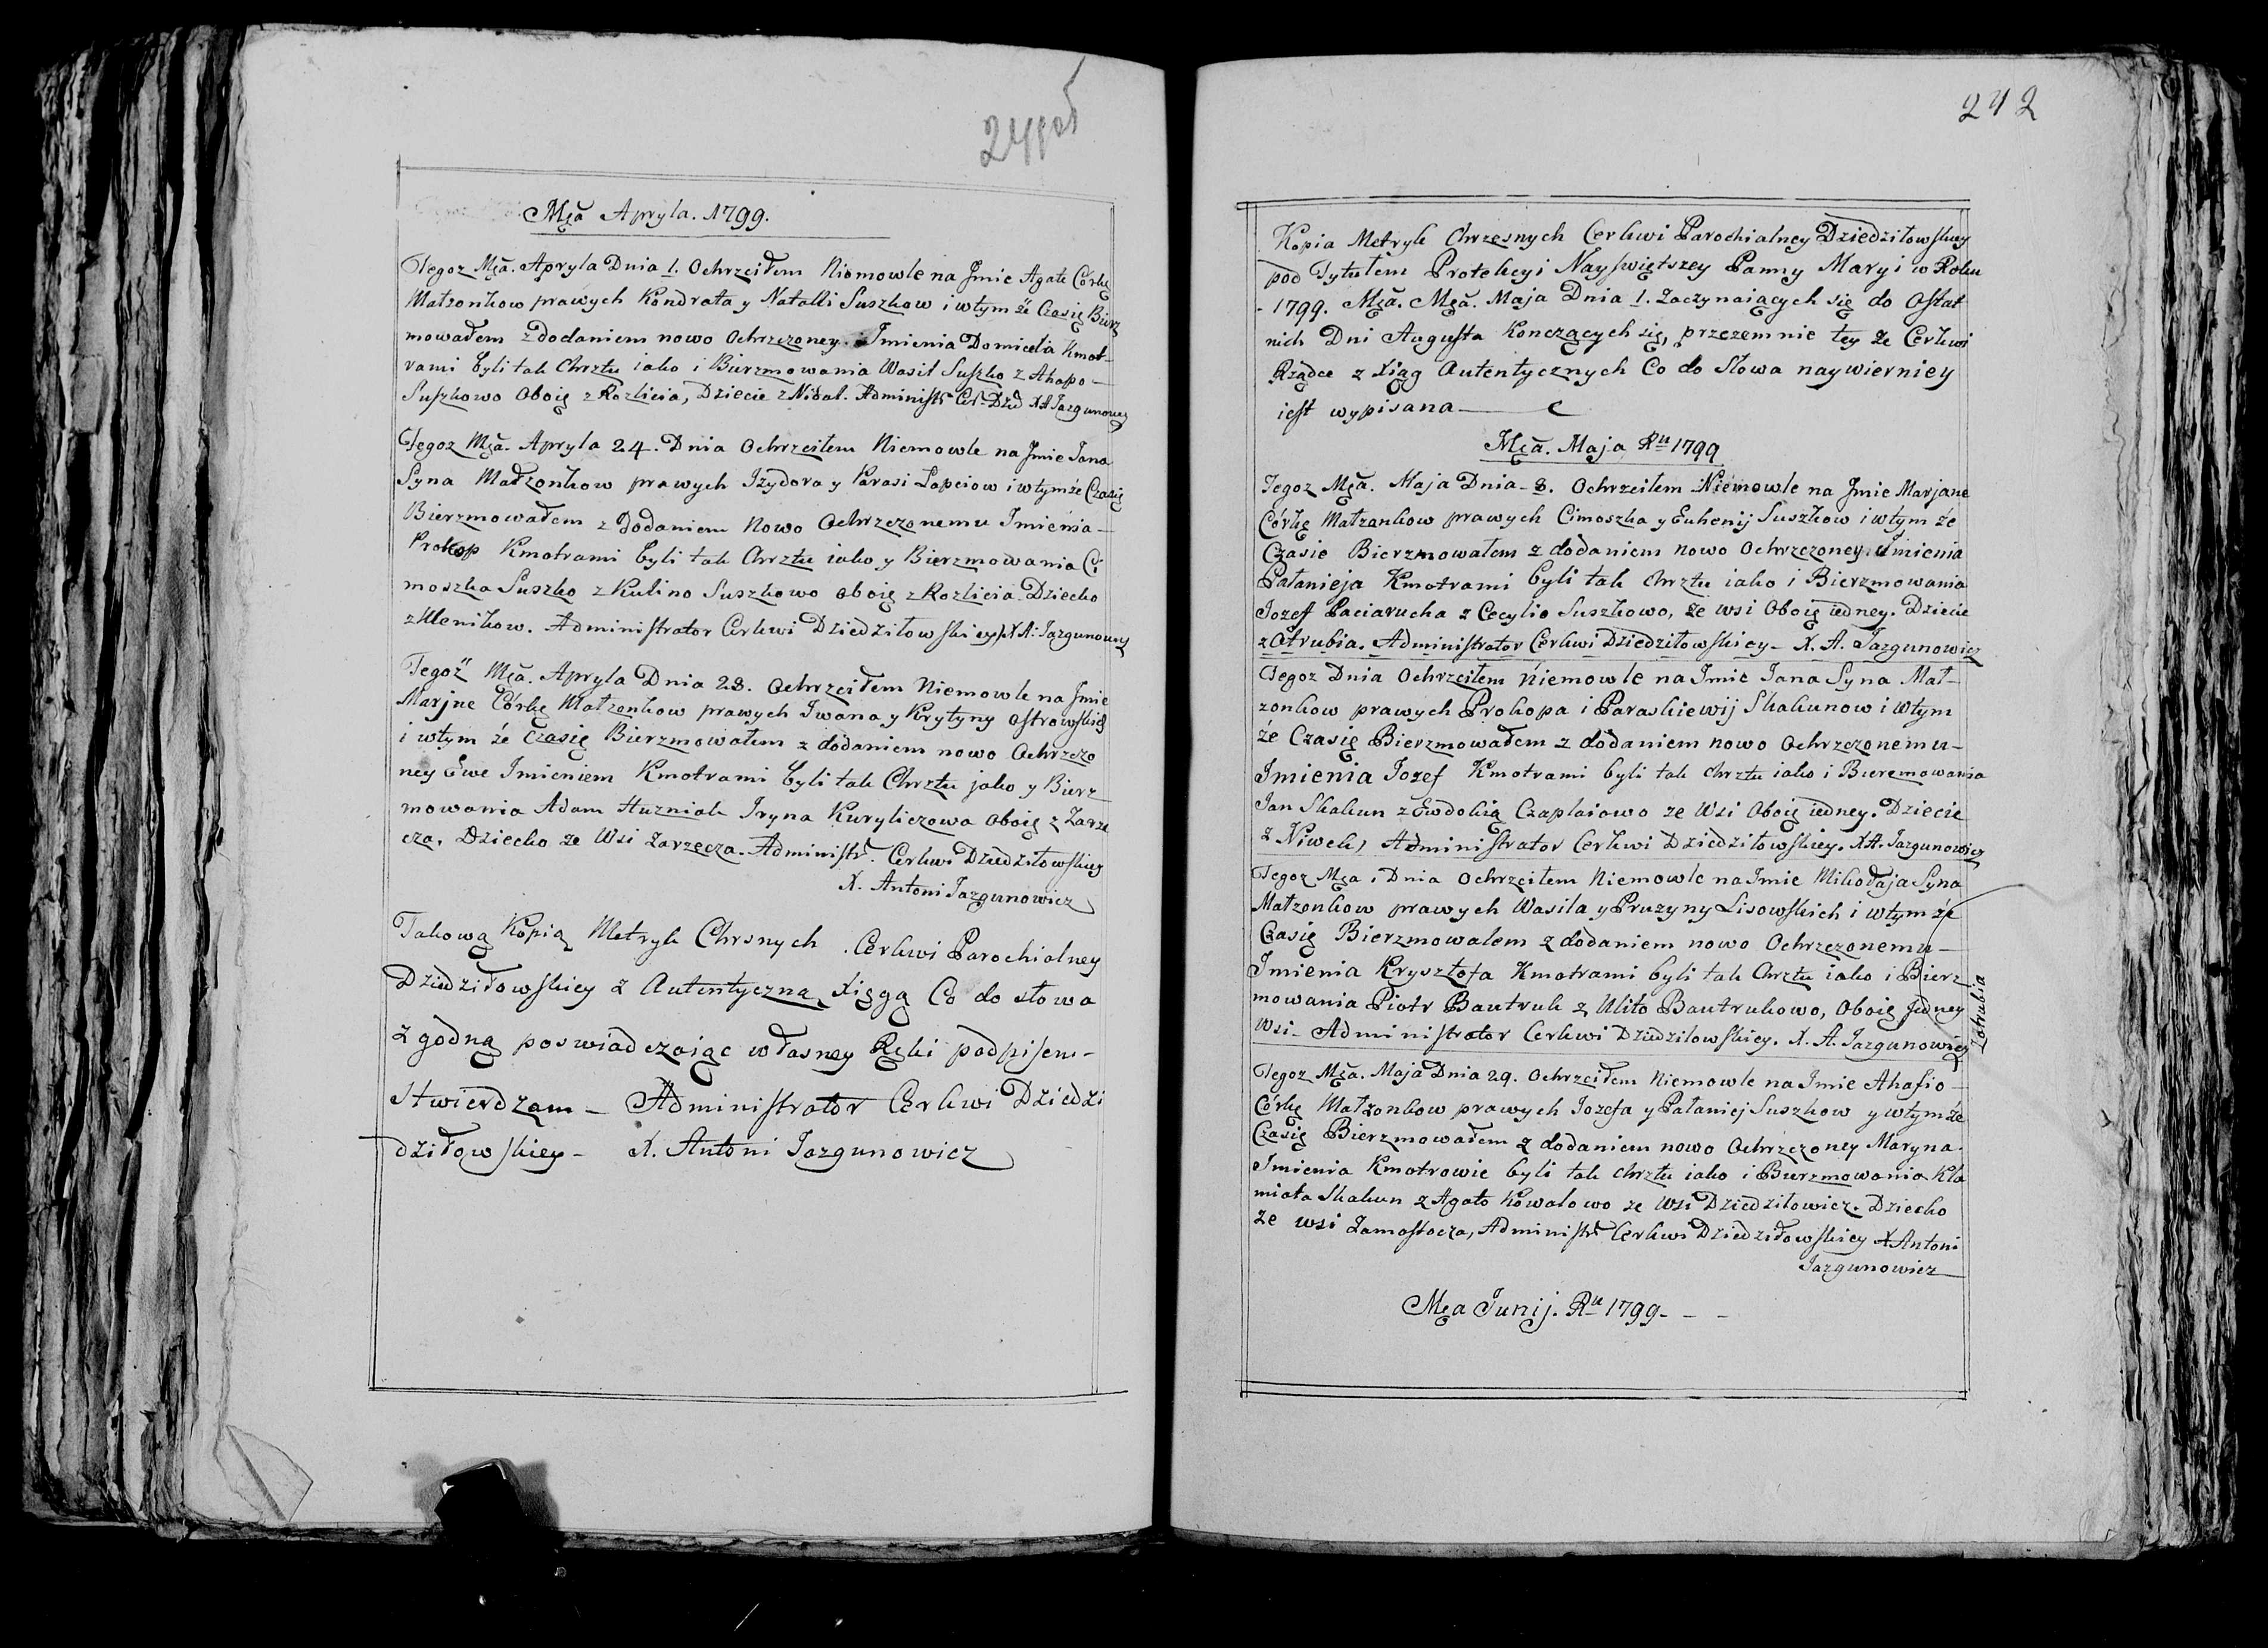 241об
Mca Apryla. 1799.
Tegoz Mca. Apryla Dnia 1. Ochrzciłem Niemowle na Jmie Agate Córkę
Matzonkow prawych Kondrata y Natalli Suszkow i wtym że Czasię Bierz
mowałem z dodaniem nowo Ochrzczoney Imienia Domicelia Kmot-
rami byli tak Chrztu iako i Bierzmowania Wasil Suszko z Ahapo-
Suszkowo Oboię z Rozlicia, Dziecie z Nidal. Administr Cer. Dzied X A Jazgunowicz
Tegoz Mca. Apryla 24. Dnia Ochrzciłem Niemowle na Jmie Jana
Syna Małzonkow prawych Izydora y Parasi Łapciow i wtymże Czasię
Bierzmowałem z Dodaniem Nowo Ochrzczonemu Imienia-
Prokop Kmotrami byli tak Chrztu iako y Bierzmowania Ci
moszka Suszko z Kulino Suszkowo oboię z Rozlicia Dziecko
z Klenikow. Administrator Cerkwi Dziedziłowskiey X A: Jazgunowicz
Tegoż Mca. Apryla Dnia 28. Ochrzciłem Niemowle na Jmie
Marjne Córkę Matzonkow prawych Iwana y Krytyny Ostrowskich
i wtym że Czasię Bierzmowałem z dodaniem nowo Ochrzczo
ney Ewe Imieniem Kmotrami byli tak Chrztu jako y Bierz
mowania Adam Huzniak Iryna Kuryliczowa Oboię z Zarze
cza, Dziecko ze Wsi Zarzecza. Administr. Cerkwi Dziedziłowskiey
X. Antoni Jazgunowicz
Takową Kopią Metryk Chrsnych Cerkwi Parochialney
Dziedziłowskiey z Autentyczną Xięgą Co do słowa
zgodną poswiadczaiąc własney Ręki podpisem-
Stwierdzam - Administrator Cerkwi Dziedzi
dziłowskiey - X. Antoni Jazgunowicz
242
Kopia Metryk Chrzesnych Cerkwi Parochialney Dziedziłowskiey
pod Tytułem Protekcyi Nayswiętszey Panny Maryi w Roku
- 1799. Mca. Mca. Maja Dnia 1. Zaczynaiących się do Ostat
nich Dni Augusta Konczących się, przezemnie tey że Cerkwi
Rządce z Xiąg Autentycznych Co do Słowa naywierniey
iest wypisana
Mca. Maja Ru 1799
Tegoz Mca. Maja Dnia 8. Ochrzciłem Niemowle na Jmie Marjane
Córkę Matzonkow prawych Cimoszka y Euhenij Suszkow i wtym że
Czasie Bierzmowałem z dodaniem nowo Ochrzczoney Imienia
Pałanieja Kmotrami byli tak chrztu iako i Bierzmowania
Jozef Paciarucha z Cecylio Suszkowo, ze wsi Oboię iedney. Dziecie
z Otrubia. Administrator Cerkwi Dziedziłowskiey - X. A. Jazgunowicz
Tegoz Dnia Ochrzciłem Niemowle na Imie Jana Syna Mał-
zonkow prawych Prokopa i Paraskiewij Skakunow i wtym
że Czasię Bierzmowałem z dodaniem nowo Ochrzczonemu-
Imienia Jozef Kmotrami byli tak chrztu iako i Bierzmowania
Jan Skakun z Ewdokią Czaplaiowo ze Wsi Oboię iedney. Dziecie
z Niwek, Administrator Cerkwi Dziedziłowskiey. X A. Jazgunowicz
Tegoz Mca i Dnia Ochrzciłem Niemowle na Imie Mikołaja Syna
Matzonkow prawych Wasila y Pruzyny Lisowskich i wtym że
Czasię Bierzmowałem z dodaniem nowo Ochrzczonemu-
Imienia Krysztofa Kmotrami byli tak Chrztu iako i Bierz
mowania Piotr Bautruk z Ulito Bautrukowo, Oboię Jedney
Wsi - Administrator Cerkwi Dziedziłowskiey. X. A. Jazgunowicz
z otrubia
Tegoz Mca. Maja Dnia 29. Ochrzciłem Niemowle na Imie Ahafio-
Córkę Małzonkow prawych Jozefa y Pałaniej Suszkow y wtymże
Czasię Bierzmowałem z dodaniem nowo Ochrzczoney Maryna
Imienia Kmotrowie byli tak chrztu iako i Bierzmowania Kla
miata Skakun z Agato Kowalowo ze Wsi Dziedziłowicz. Dziecko
ze wsi Zamostocza, Administr Cerkwi Dziedziłowskiey X Antoni
Jazgunowicz
Mca Junij. Ru 1799 - - -